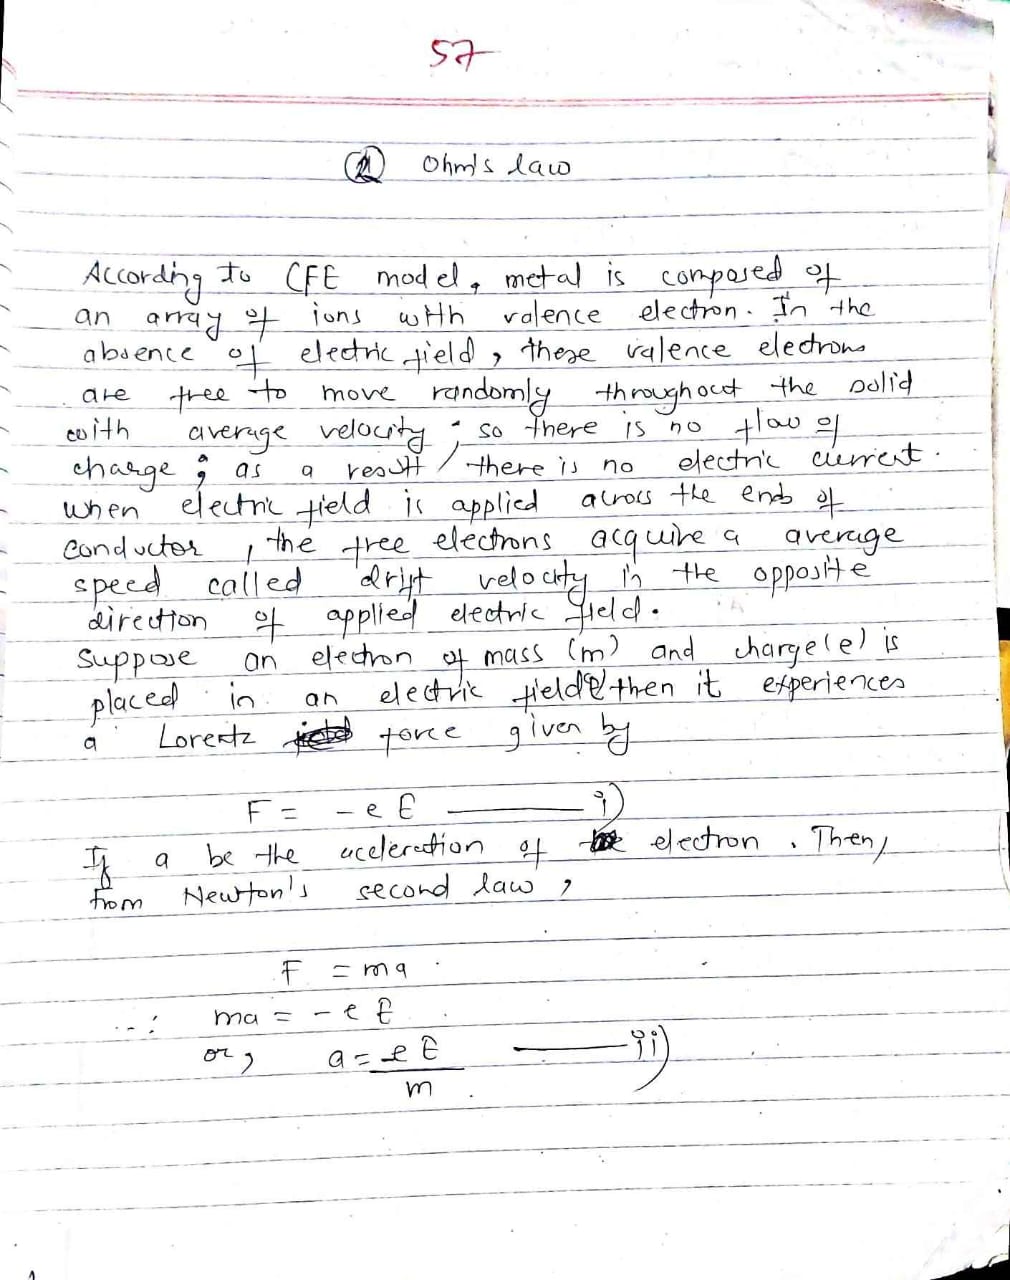 57
Ohm's law
According to CFE model, metal is composed of
an array of ions with valence electron. In the
absence of electric field, these valence electrons
are free to move randomly throughout the solid
with average velocity; so there is no flow of
charge; as a result there is no electric current.
When electric field is applied across the ends of
conductor, the free electrons acquire a average
speed called drift velocity in the opposite
direction of applied electric field.
Suppose an electron of mass (m) and charge(e) is
placed in an electric field then it experiences
a Lorentz force given by
F = - e E ——— i)
If a be the aceleration of electron. Then,
from Newton's second law,
F = ma
∴ ma = - e E
or, a = eE/m ——— ii)